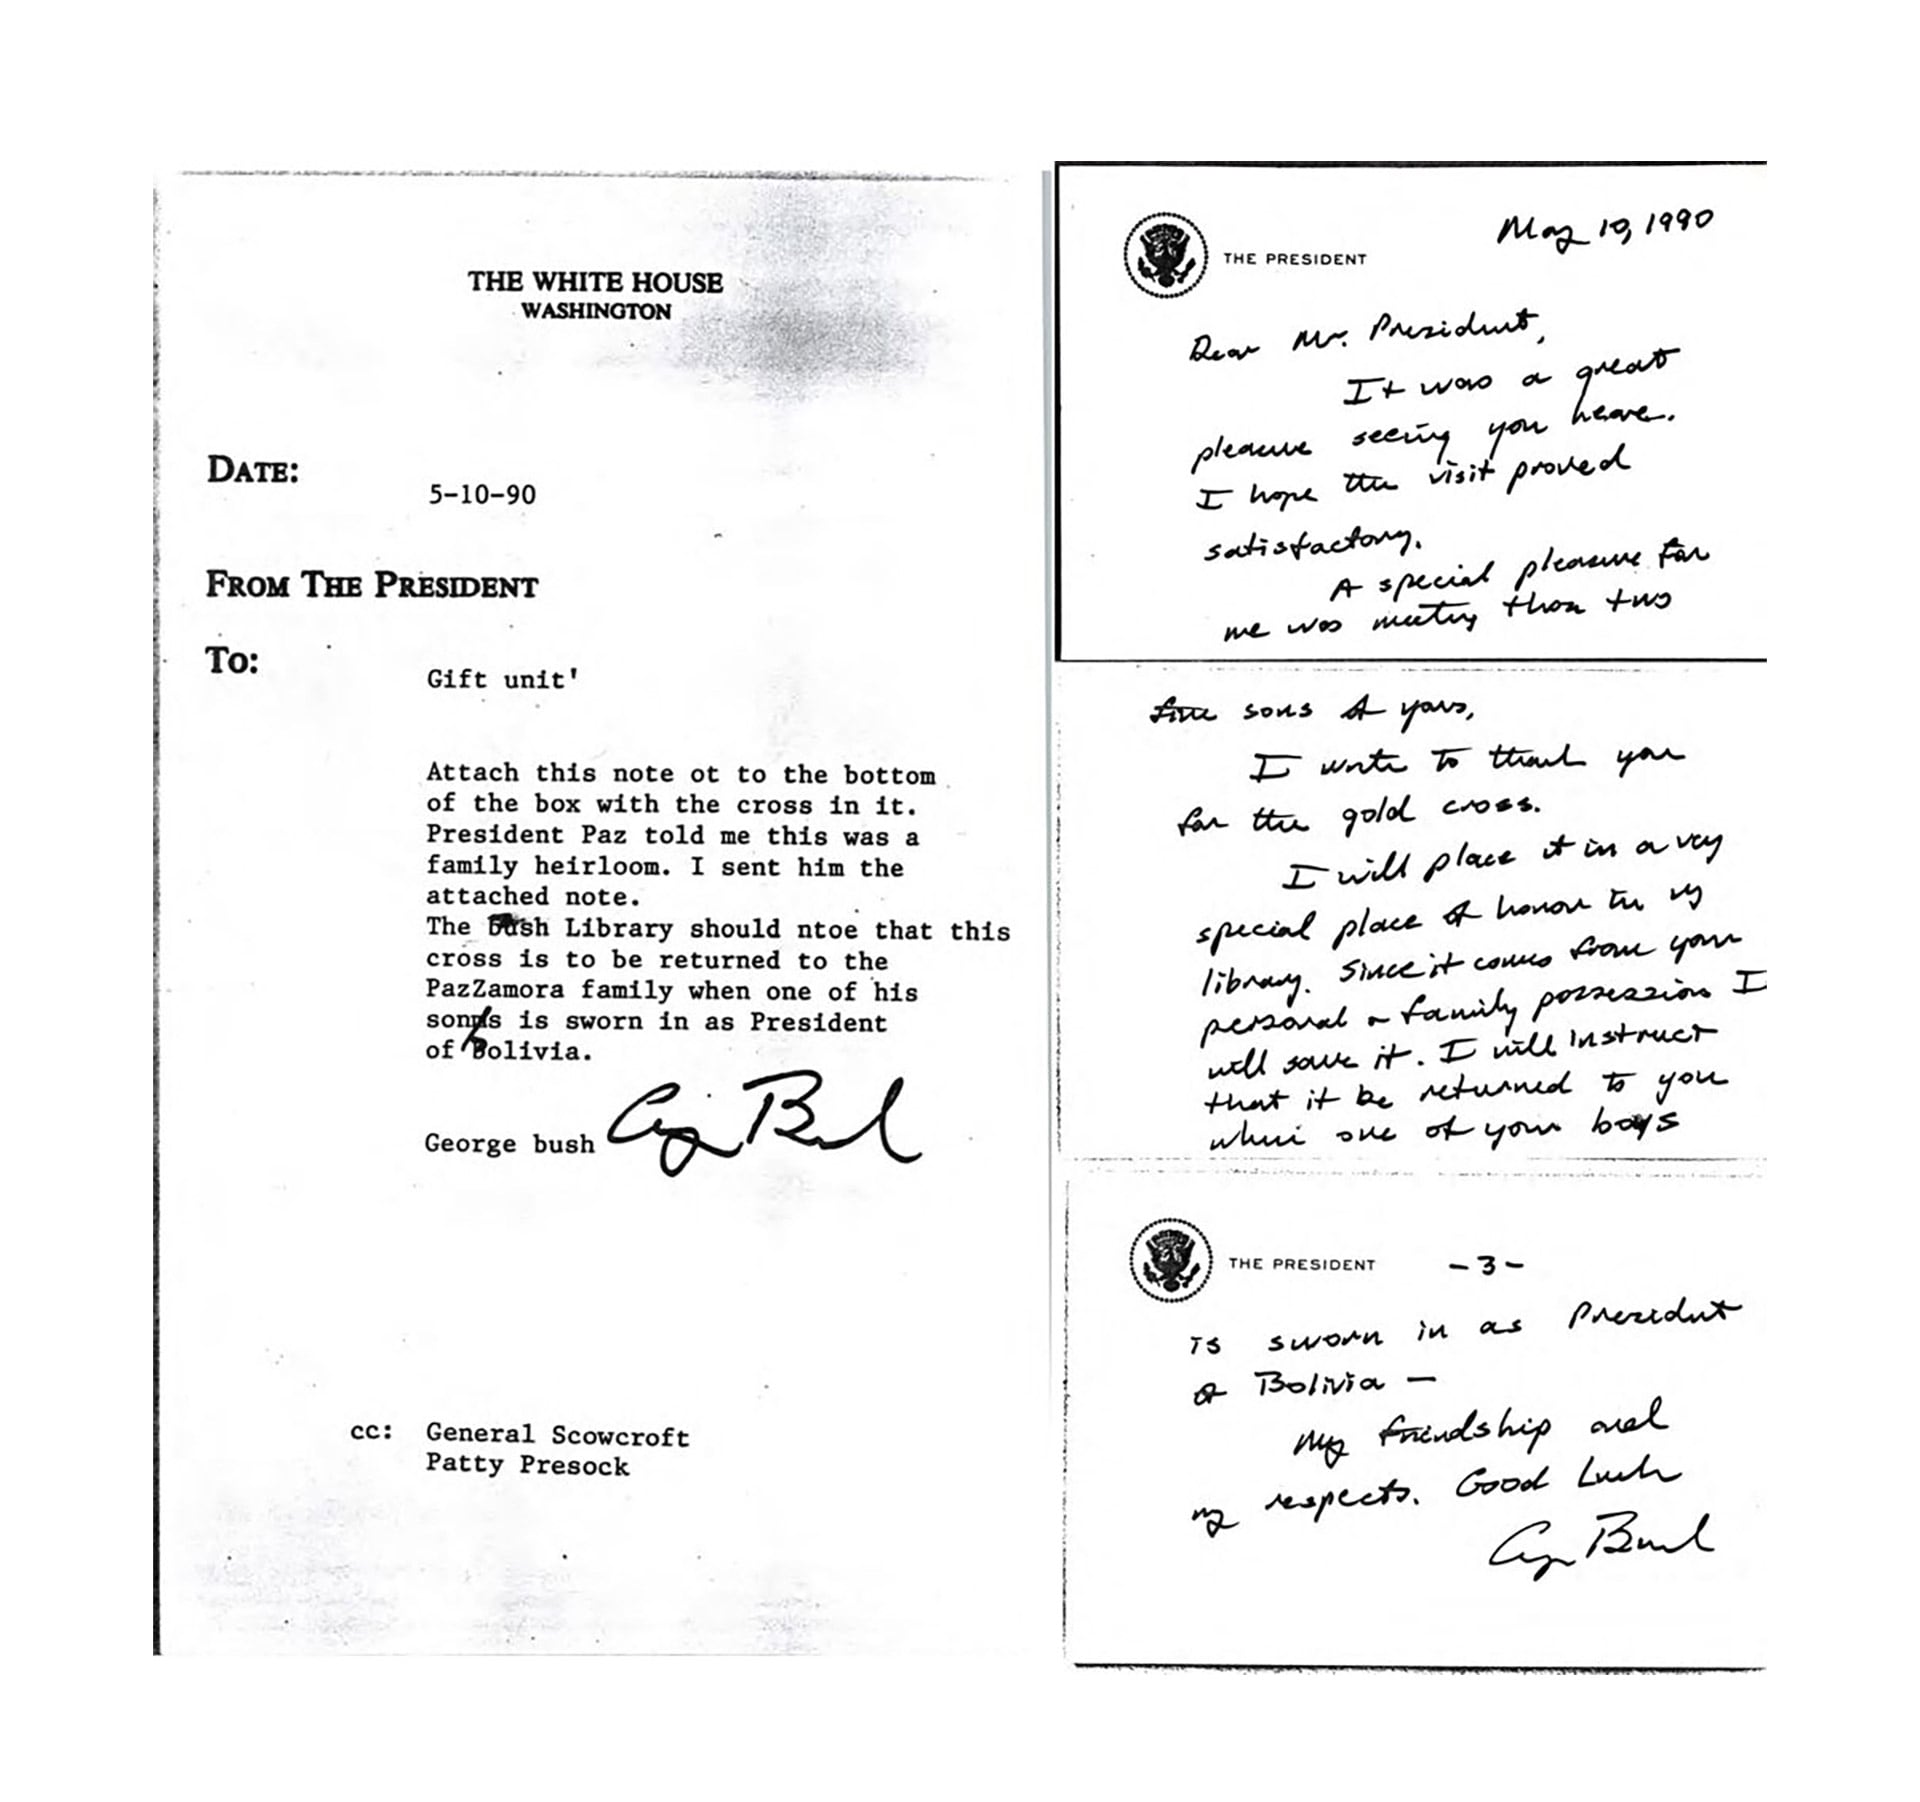 THE WHITE HOUSE
WASHINGTON
DATE:
5-10-90
FROM THE PRESIDENT
To:
Gift unit'
Attach this note ot to the bottom
of the box with the cross in it.
President Paz told me this was a
family heirloom. I sent him the
attached note.
The bush Library should ntoe that this
cross is to be returned to the
PazZamora family when one of his
sons is sworn in as President
of Bolivia.
George bush George Bush
cc: General Scowcroft
Patty Presock
THE PRESIDENT
May 10, 1990
Dear Mr. President,
It was a great
pleasure seeing you here.
I hope the visit proved
satisfactory.
A special pleasure for
me was meeting those two
fine sons of yours,
I write to thank you
for the gold cross.
I will place it in a very
special place of honor in my
library. Since it comes from your
personal or family possession I
will save it. I will instruct
that it be returned to you
when one of your boys
THE PRESIDENT -3-
is sworn in as President
of Bolivia —
My friendship and
my respects. Good Luck
George Bush